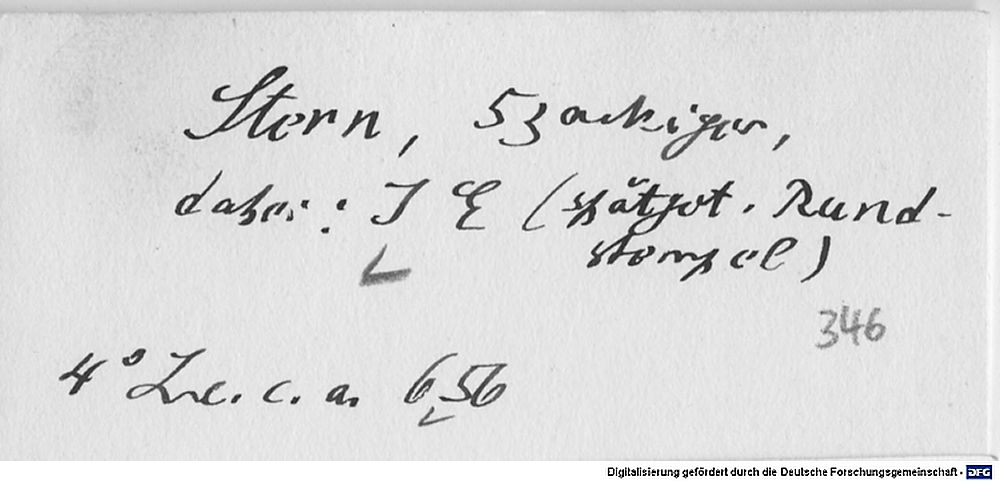 Stern, 5zackiger,
dabei: I E (spätgot. Rund-
stempel)
346
4° Inc. c. a. 656
Digitalisierung gefördert durch die Deutsche Forschungsgemeinschaft - DFG